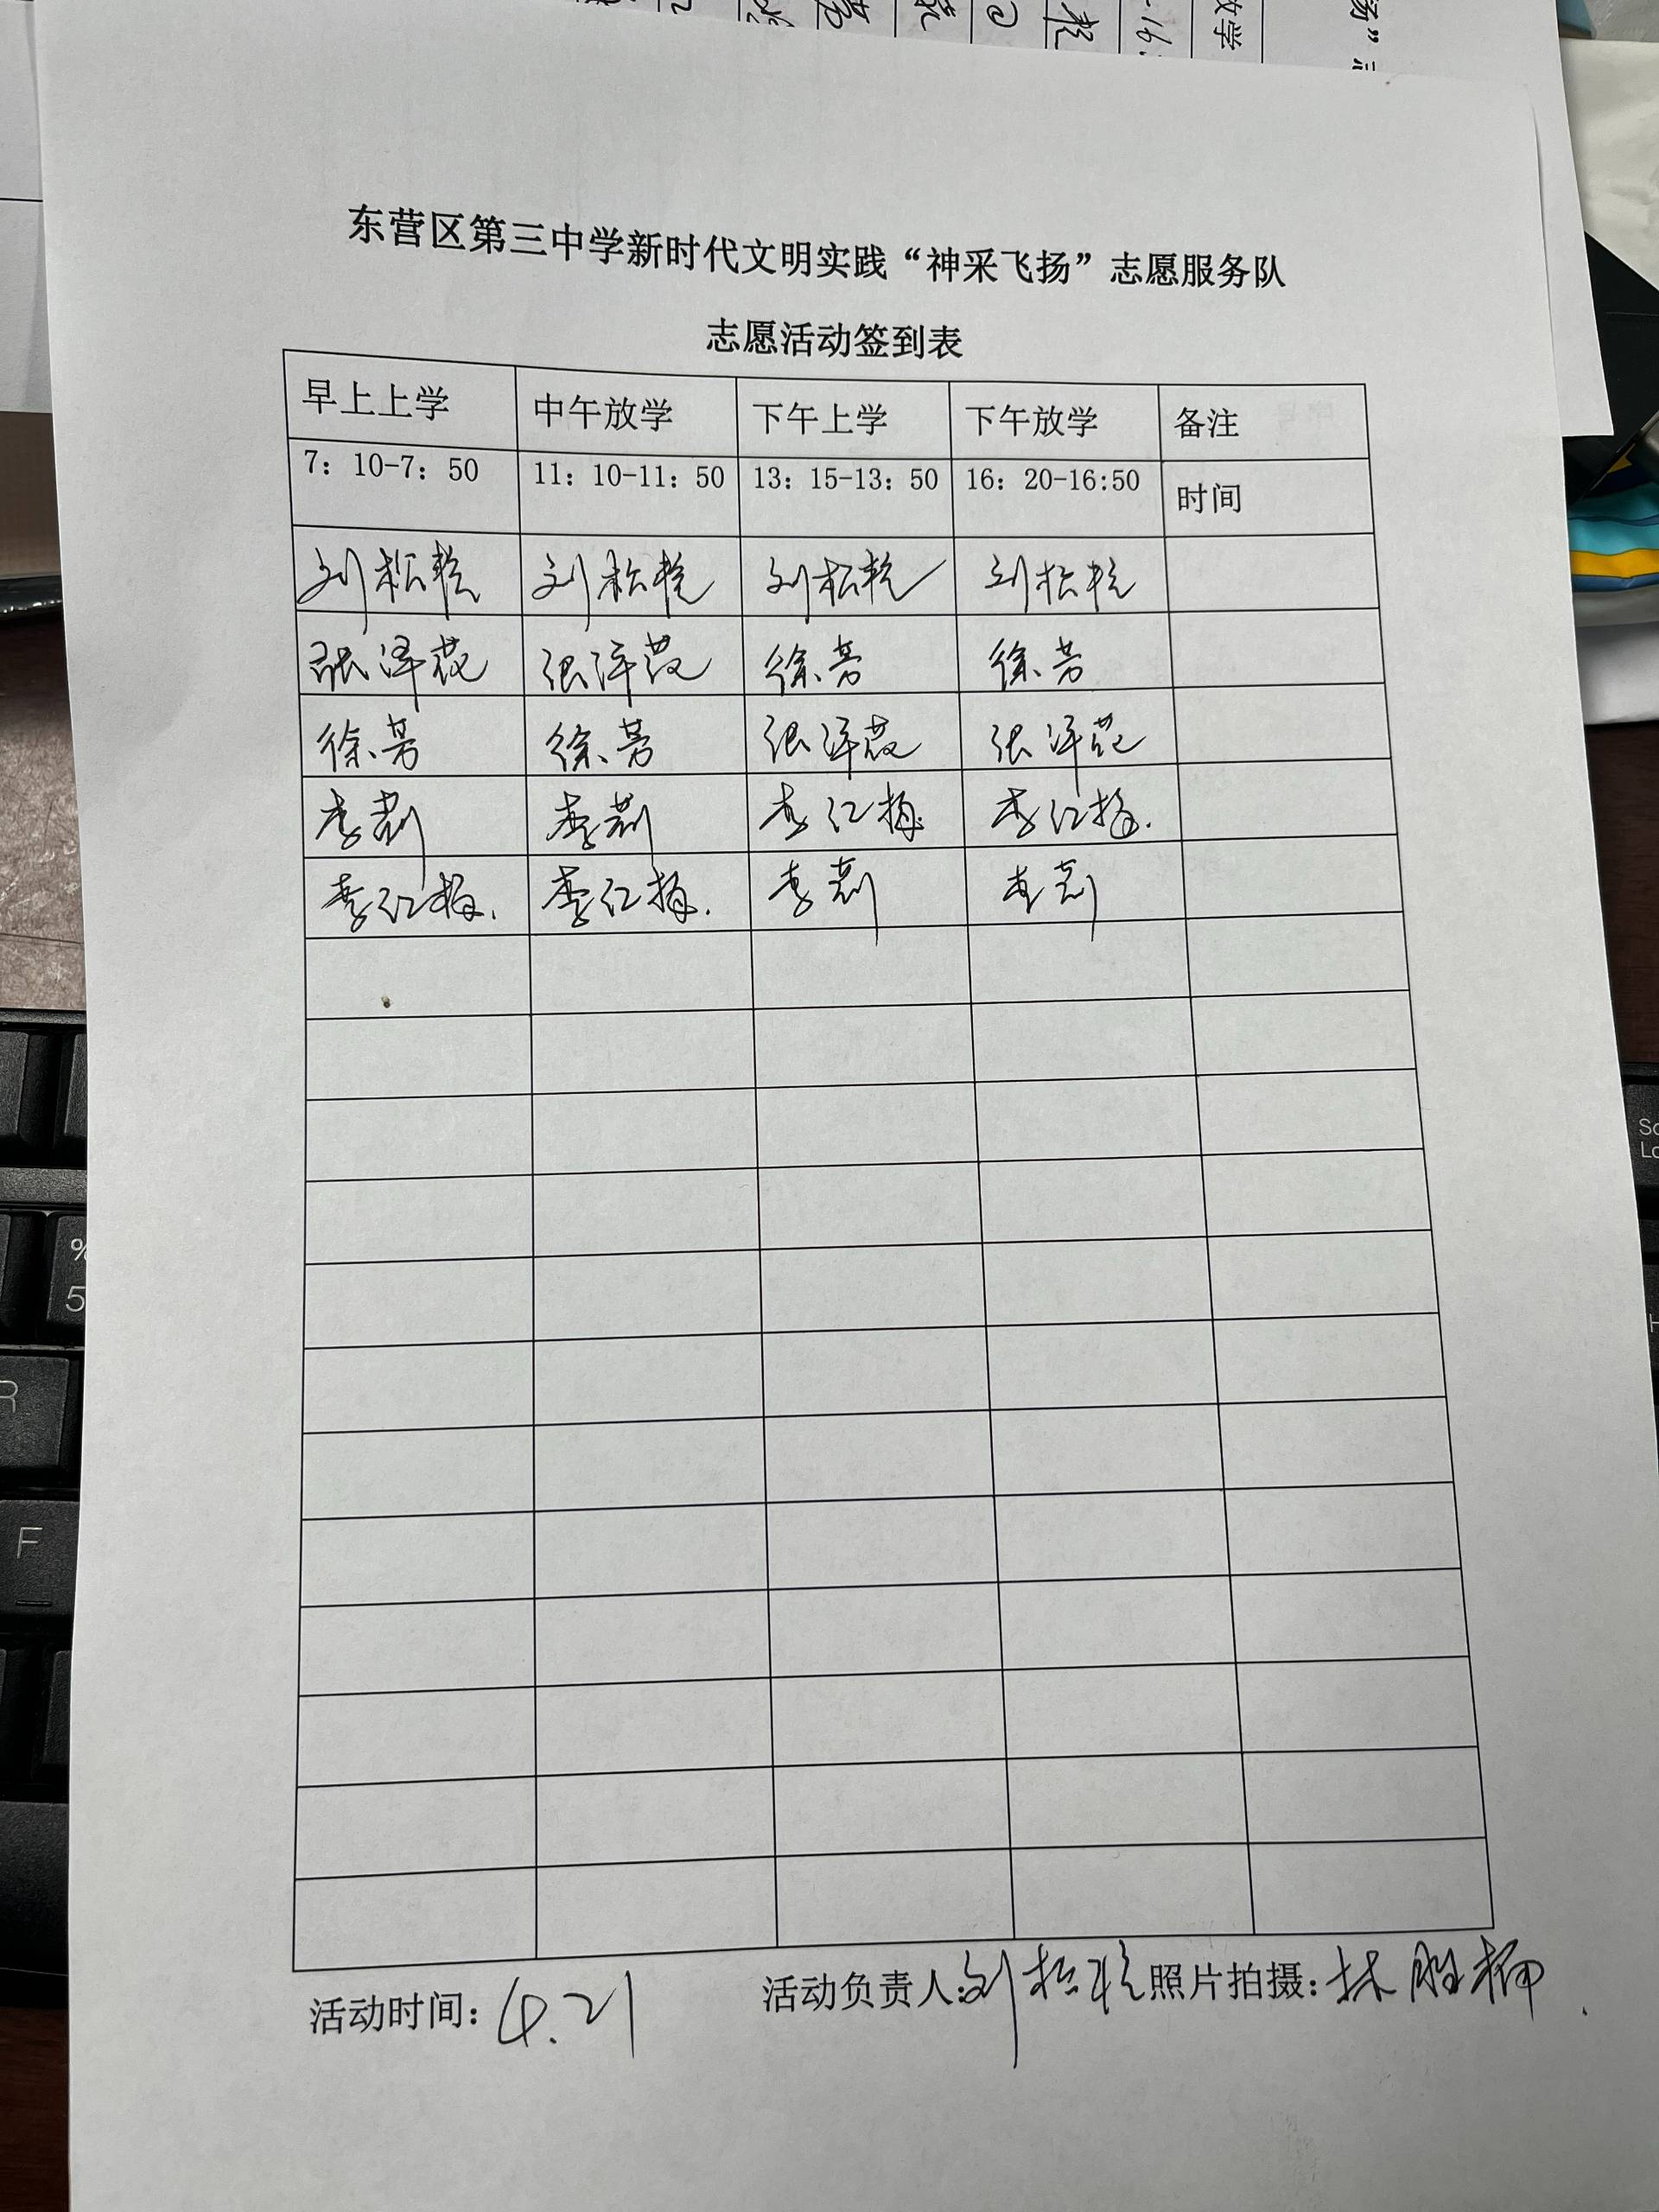 东营区第三中学新时代文明实践“神采飞扬”志愿服务队
志愿活动签到表
早上上学 中午放学 下午上学 下午放学 备注
7：10-7：50 11：10-11：50 13：15-13：50 16：20-16:50 时间
刘松 刘松 刘松 刘松
张泽 张泽 徐芳 徐芳
徐芳 徐芳 张泽 张泽
李莉 李莉 李红梅 李红梅.
李红梅. 李红梅. 李莉 李莉
活动时间：4.21 活动负责人：刘松 照片拍摄：林胜
放学
扬”
% 5
R
F